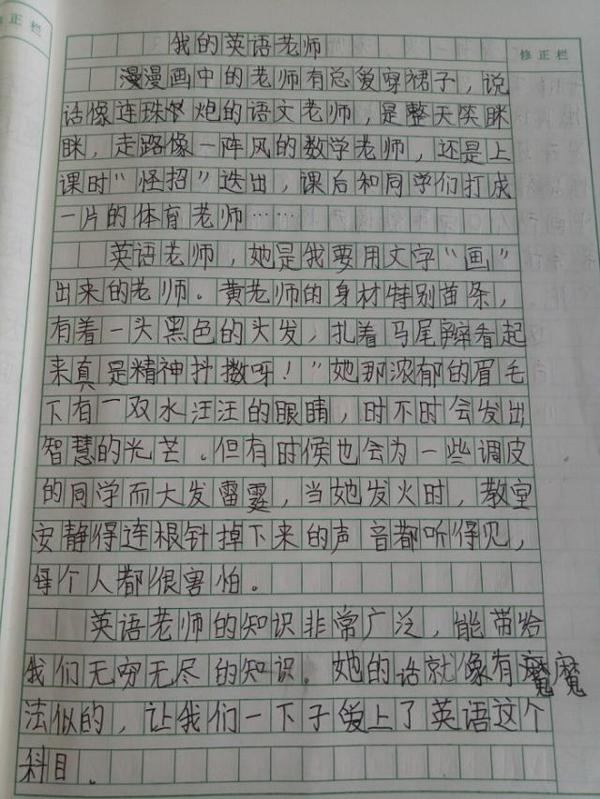 修正栏
修正栏
我的英语老师
漫漫画中的老师有总爱穿裙子，说
话像连珠炮的语文老师，是整天笑眯
眯，走路像一阵风的数学老师，还是上
课时“怪招”迭出，课后和同学们打成
一片的体育老师……
英语老师，她是我要用文字“画”
出来的老师。黄老师的身材特别苗条，
有着一头黑色的头发，扎着马尾辫看起
来真是精神抖擞呀！”她那浓郁的眉毛
下有一双水汪汪的眼睛，时不时会发出
智慧的光芒。但有时候也会为一些调皮
的同学而大发雷霆，当她发火时，教室
安静得连根针掉下来的声音都听得见，
每个人都很害怕。
英语老师的知识非常广泛，能带给
我们无穷无尽的知识。她的话就像有魔魔
法似的，让我们一下子爱上了英语这个
科目.